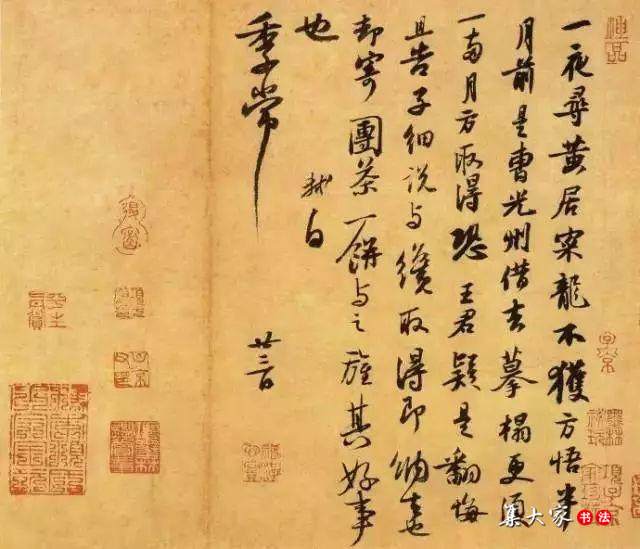 一夜尋黄居寀龍不獲方悟半
月前是曹光州借去摹榻更須
一兩月方取得恐王君疑是翻悔
且告子細説与纔取得即納去也
却寄團茶一餅与之旌其好事
也
軾白
季常
廿三日
神品
集大家书法